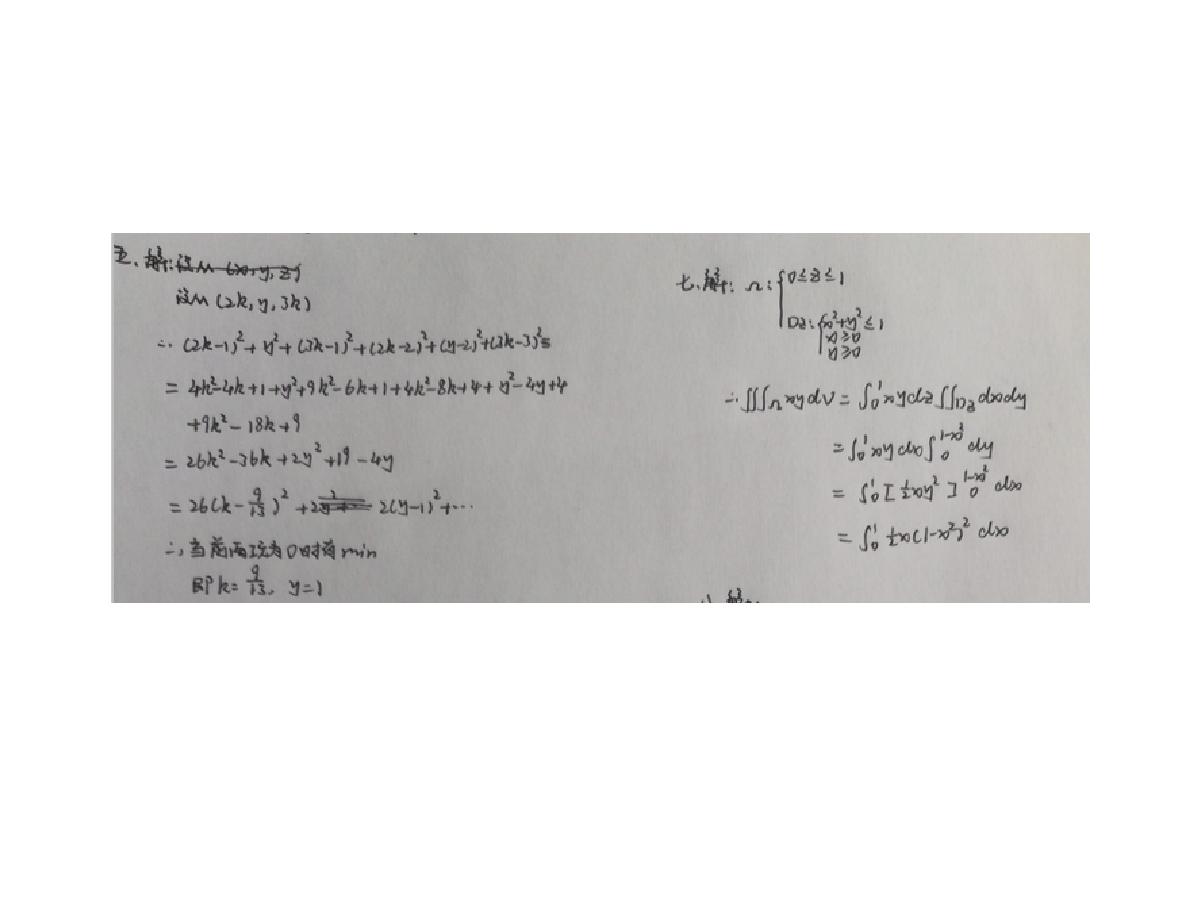 五、解:设M(x,y,z)
设M(2k,y,3k)
∴ (2k-1)²+y²+(3k-1)²+(2k-2)²+(y-2)²+(3k-3)²=
= 4k²-4k+1+y²+9k²-6k+1+4k²-8k+4+y²-4y+4
+9k²-18k+9
= 26k²-36k+2y²+19-4y
= 26(k-9/13)²+2(y-1)²+…
∴ 当前两项为0时有min
即k=9/13, y=1
七、解: Ω:{0≤z≤1
Dz:{x²+y²≤1
x≥0
y≥0
∴∭Ω xydv = ∫₀¹xydz∬Dz dxdy
= ∫₀¹ xydx∫₀^{1-x²} dy
= ∫₀¹ [½xy²]₀^{1-x²} dx
= ∫₀¹ ½x(1-x²)² dx